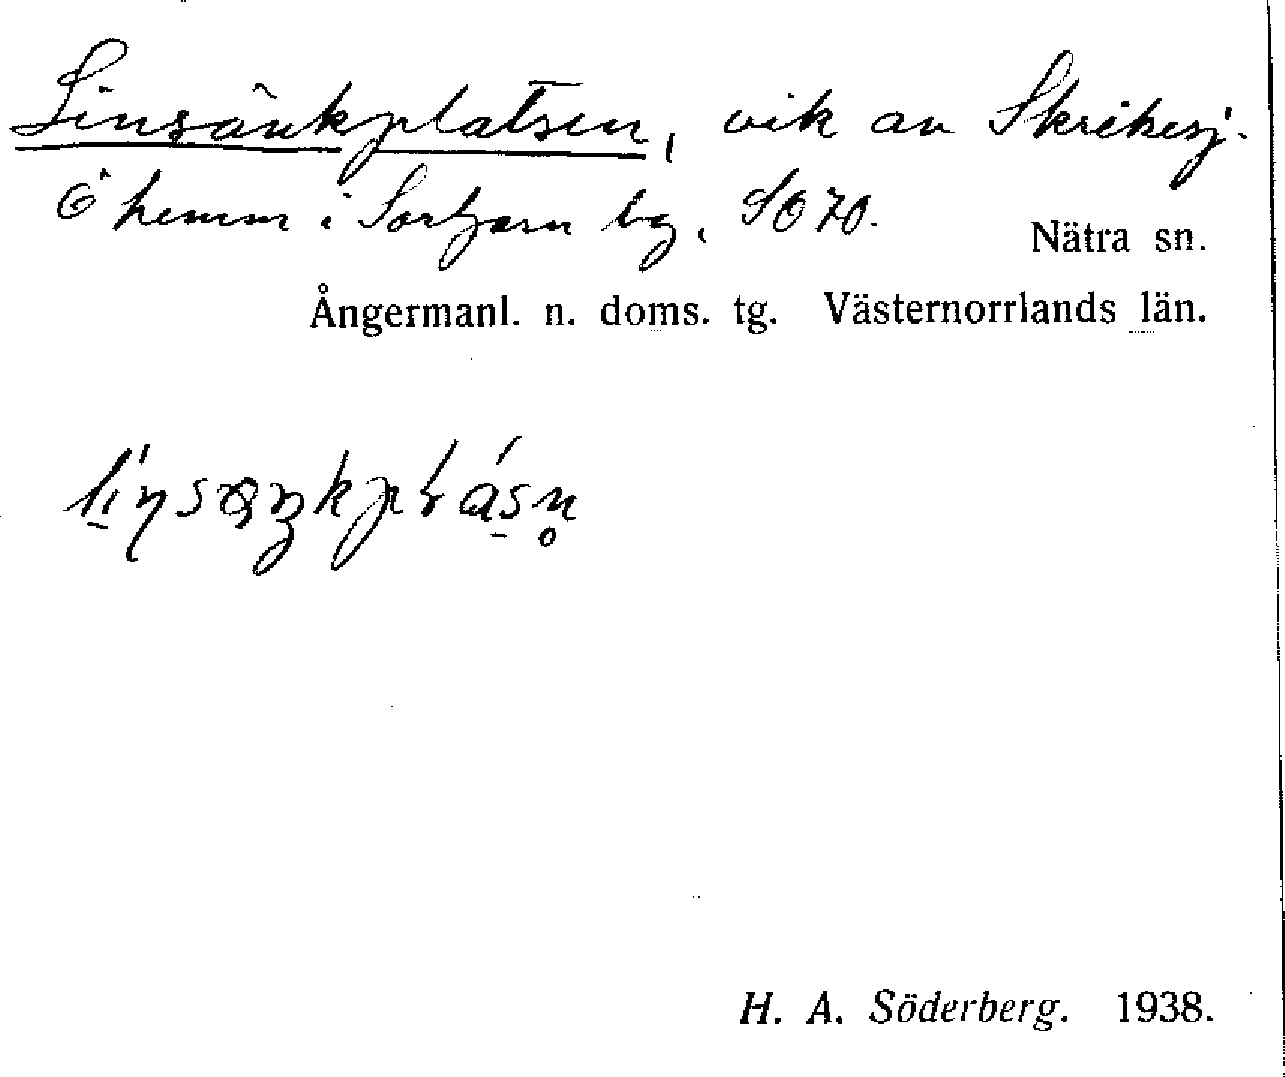 Linsänkplatsen, vik av Skrikesj.
Ö hemm i Sortjärn by, SO 70.
Nätra sn.
Ångermanl. n. doms. tg. Västernorrlands län.
H. A. Söderberg. 1938.